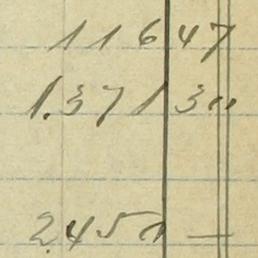 116 47
1.371 30
2450 —